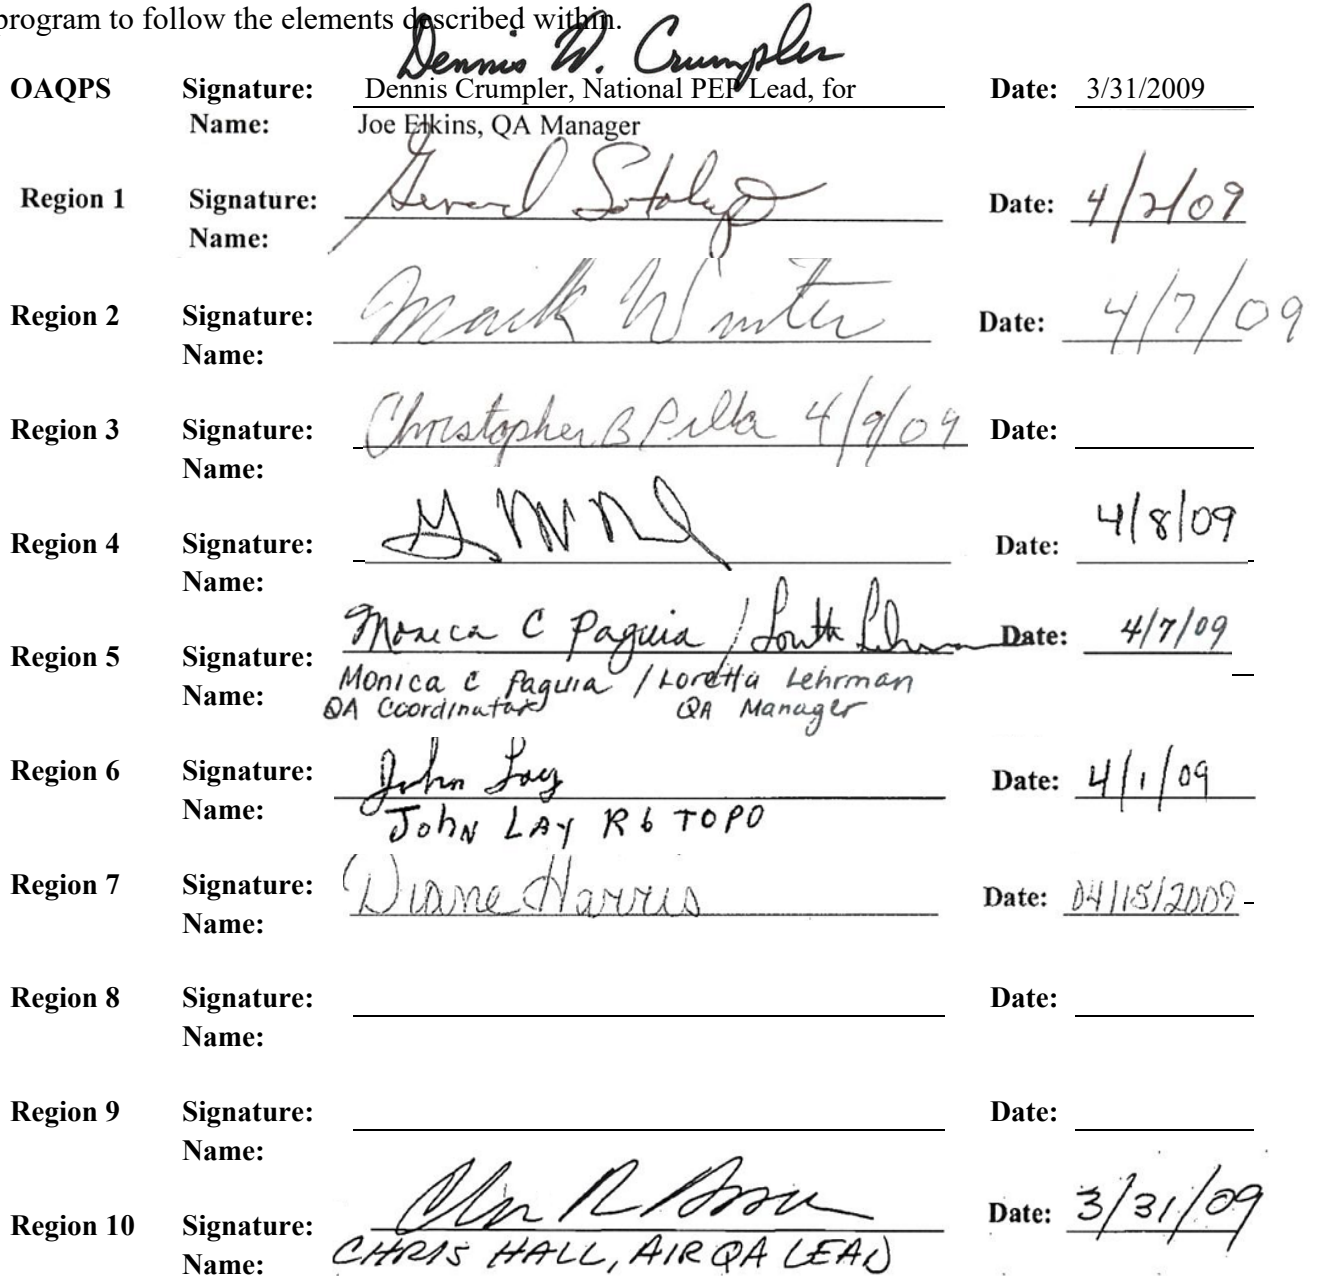 program to follow the elements described within.
Dennis W. Crumpler
OAQPS Signature: Dennis Crumpler, National PEP Lead, for Date: 3/31/2009
Name: Joe Elkins, QA Manager
Region 1 Signature: Gerard Date: 4/2/09
Name:
Region 2 Signature: Mark Winter Date: 4/7/09
Name:
Region 3 Signature: Christopher B Pilla 4/9/09 Date:
Name:
Region 4 Signature: Date: 4/8/09
Name:
Region 5 Signature: Monica C Paguia / Date: 4/7/09
Name: Monica C Paguia / Loretta Lehrman
QA Coordinator QA Manager
Region 6 Signature: John Lay Date: 4/1/09
Name: John LAY R6 TOPO
Region 7 Signature: Diane Harris Date: 04/15/2009
Name:
Region 8 Signature: Date:
Name:
Region 9 Signature: Date:
Name:
Region 10 Signature: Date: 3/31/09
Name: CHRIS HALL, AIR QA LEAD